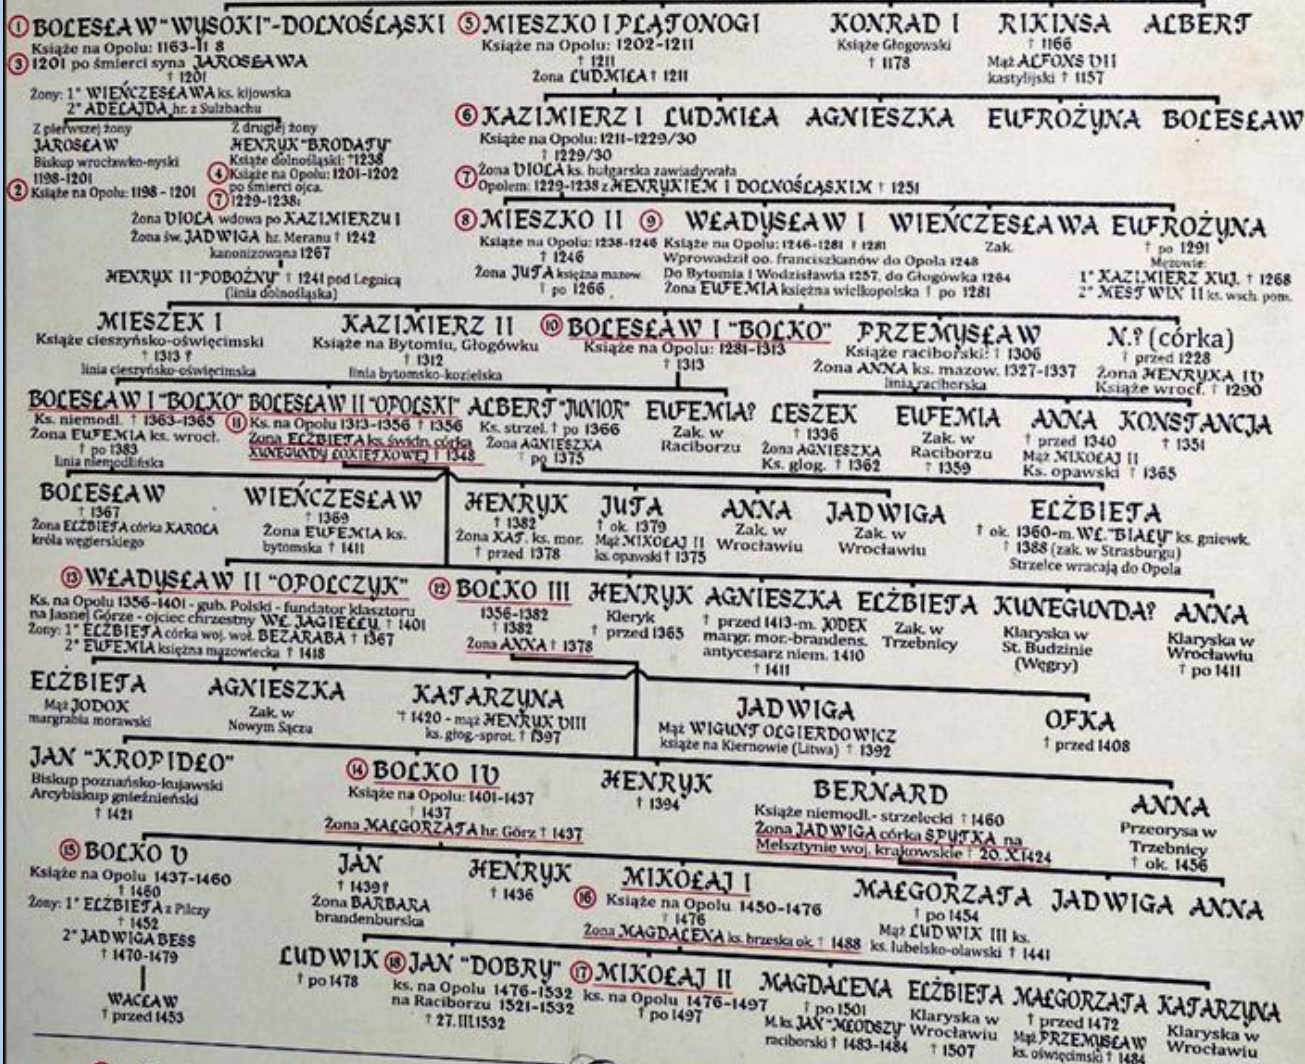 ① BOLESŁAW "WYSOKI"-DOLNOŚLĄSKI
Książe na Opolu: 1163-11 8
③ 1201 po śmierci syna JAROSŁAWA
† 1201
Żony: 1° WIEŃCZESŁAWA ks. kijowska
2° ADELAJDA hr. z Sulzbachu
⑤ MIESZKO I PLĄTONOGI
Książe na Opolu: 1202-1211
† 1211
Żona LUDMIŁA † 1211
KONRAD I
Książe Głogowski
† 1178
RIKINSA
† 1166
Mąż ALFONS VII
kastylijski † 1157
ALBERT
Z pierwszej żony
JAROSŁAW
Biskup wrocławko-nyski
1198-1201
② Książe na Opolu: 1198 - 1201
Z drugiej żony
HENRYK "BRODATY"
Książe dolnośląski: †1238
④ Książe na Opolu: 1201-1202
po śmierci ojca.
⑦ 1229-1238:
Żona VIOLA wdowa po KAZIMIERZU I
Żona św. JADWIGA hr. Meranu † 1242
kanonizowana 1267
HENRYK II "POBOŻNY" † 1241 pod Legnicą
(linia dolnośląska)
⑥ KAZIMIERZ I
Książe na Opolu: 1211-1229/30
† 1229/30
⑦ Żona VIOLA ks. bułgarska zawiadywała
Opolem: 1229-1238 z HENRYKIEM I DOLNOŚLĄSKIM † 1251
LUDMIŁA AGNIESZKA EUFROŻYNA BOLESŁAW
⑧ MIESZKO II
Książe na Opolu: 1238-1246
† 1246
Żona JUTA księżna mazow.
† po 1266
⑨ WŁADYSŁAW I
Książe na Opolu: 1246-1281 † 1281
Wprowadził oo. franciszkanów do Opola 1248
Do Bytomia i Wodzisławia 1257, do Głogówka 1264
Żona EUFEMIA księżna wielkopolska † po 1281
WIEŃCZESŁAWA
Zak.
EUFROŻYNA
† po 1291
Mężowie:
1° KAZIMIERZ KUJ. † 1268
2° MESTWIN II ks. wsch. pom.
MIESZEK I
Książe cieszyńsko-oświęcimski
† 1313 ?
linia cieszyńsko-oświęcimska
KAZIMIERZ II
Książe na Bytomiu, Głogówku
† 1312
linia bytomsko-kozielska
⑩ BOLESŁAW I "BOLKO"
Książe na Opolu: 1281-1313
† 1313
PRZEMYSŁAW
Książe raciborski: † 1306
Żona ANNA ks. mazow. 1327-1337
linia raciborska
N.? (córka)
† przed 1228
Żona HENRYKA IV
Książe wrocł. † 1290
BOLESŁAW I "BOLKO"
Ks. niemodl. † 1363-1365
Żona EUFEMIA ks. wrocł.
† po 1383
linia niemodlińska
⑪ BOLESŁAW II "OPOLSKI"
Ks. na Opolu 1313-1356 † 1356
Żona ELŻBIETA ks. świdn. córka
KUNEGUNDY ŁOKIETKOWEJ † 1348
ALBERT "JUNIOR"
Ks. strzel. † po 1366
Żona AGNIESZKA
† po 1375
EUFEMIA?
Zak. w
Raciborzu
LESZEK
† 1336
Żona AGNIESZKA
Ks. głog. † 1362
EUFEMIA
Zak. w
Raciborzu
† 1359
ANNA
† przed 1340
Mąż MIKOŁAJ II
Ks. opawski † 1365
KONSTANCJA
† 1351
BOLESŁAW
† 1367
Żona ELŻBIETA córka KAROLA
króla węgierskiego
WIEŃCZESŁAW
† 1369
Żona EUFEMIA ks.
bytomska † 1411
HENRYK
† 1382
Żona KAT. ks. mor.
† przed 1378
JUTA
† ok. 1379
Mąż MIKOŁAJ II
ks. opawski † 1375
ANNA
Zak. w
Wrocławiu
JADWIGA
Zak. w
Wrocławiu
ELŻBIETA
† ok. 1360-m. WŁ. "BIAŁY" ks. gniewk.
† 1388 (zak. w Strasburgu)
Strzelce wracają do Opola
⑬ WŁADYSŁAW II "OPOLCZYK"
Ks. na Opolu 1356-1401 - gub. Polski - fundator klasztoru
na Jasnej Górze - ojciec chrzestny WŁ. JAGIEŁŁY † 1401
Żony: 1° ELŻBIETA córka woj. woł. BEZARABA † 1367
2° EUFEMIA księżna mazowiecka † 1418
⑫ BOLKO III
1356-1382
† 1382
Żona ANNA † 1378
HENRYK
Kleryk
† przed 1365
AGNIESZKA
† przed 1413-m. JODEK
margr. mor.-brandens.
antycesarz niem. 1410
† 1411
ELŻBIETA
Zak. w
Trzebnicy
KUNEGUNDA?
Klaryska w
St. Budzinie
(Węgry)
ANNA
Klaryska w
Wrocławiu
† po 1411
ELŻBIETA
Mąż JODOX
margrabia morawski
AGNIESZKA
Zak. w
Nowym Sączu
KATARZYNA
† 1420 - mąż HENRYK VIII
ks. głog.-sprot. † 1397
JADWIGA
Mąż WIGUNT OLGIERDOWICZ
książe na Kiernowie (Litwa) † 1392
OFKA
† przed 1408
JAN "KROPIDŁO"
Biskup poznańsko-kujawski
Arcybiskup gnieźnieński
† 1421
⑭ BOLKO IV
Książe na Opolu: 1401-1437
† 1437
Żona MAŁGORZATA hr. Görz † 1437
HENRYK
† 1394
BERNARD
Książe niemodl.- strzelecki † 1460
Żona JADWIGA córka SPYTKA na
Melsztynie woj. krakowskie † 20.X.1424
ANNA
Przeorysa w
Trzebnicy
† ok. 1456
⑮ BOLKO V
Książe na Opolu 1437-1460
† 1460
Żony: 1° ELŻBIETA z Pilczy
† 1452
2° JADWIGA BESS
† 1470-1479
WACŁAW
† przed 1453
JAN
† 1439?
Żona BARBARA
brandenburska
HENRYK
† 1436
⑯ MIKOŁAJ I
Książe na Opolu 1450-1476
† 1476
Żona MAGDALENA ks. brzeska ok. † 1488
MAŁGORZATA
† po 1454
Mąż LUDWIK III ks.
ks. lubelsko-oławski † 1441
JADWIGA ANNA
LUDWIK
† po 1478
⑱ JAN "DOBRY"
ks. na Opolu 1476-1532
na Raciborzu 1521-1532
† 27.III.1532
⑰ MIKOŁAJ II
ks. na Opolu 1476-1497
† po 1497
MAGDALENA
† po 1501
M. ks. JAN "MŁODSZY"
raciborski † 1483-1484
ELŻBIETA
Klaryska w
Wrocławiu
† 1507
MAŁGORZATA
† przed 1472
Mąż PRZEMYSŁAW
ks. oświęcimski † 1484
KATARZYNA
Klaryska w
Wrocławiu